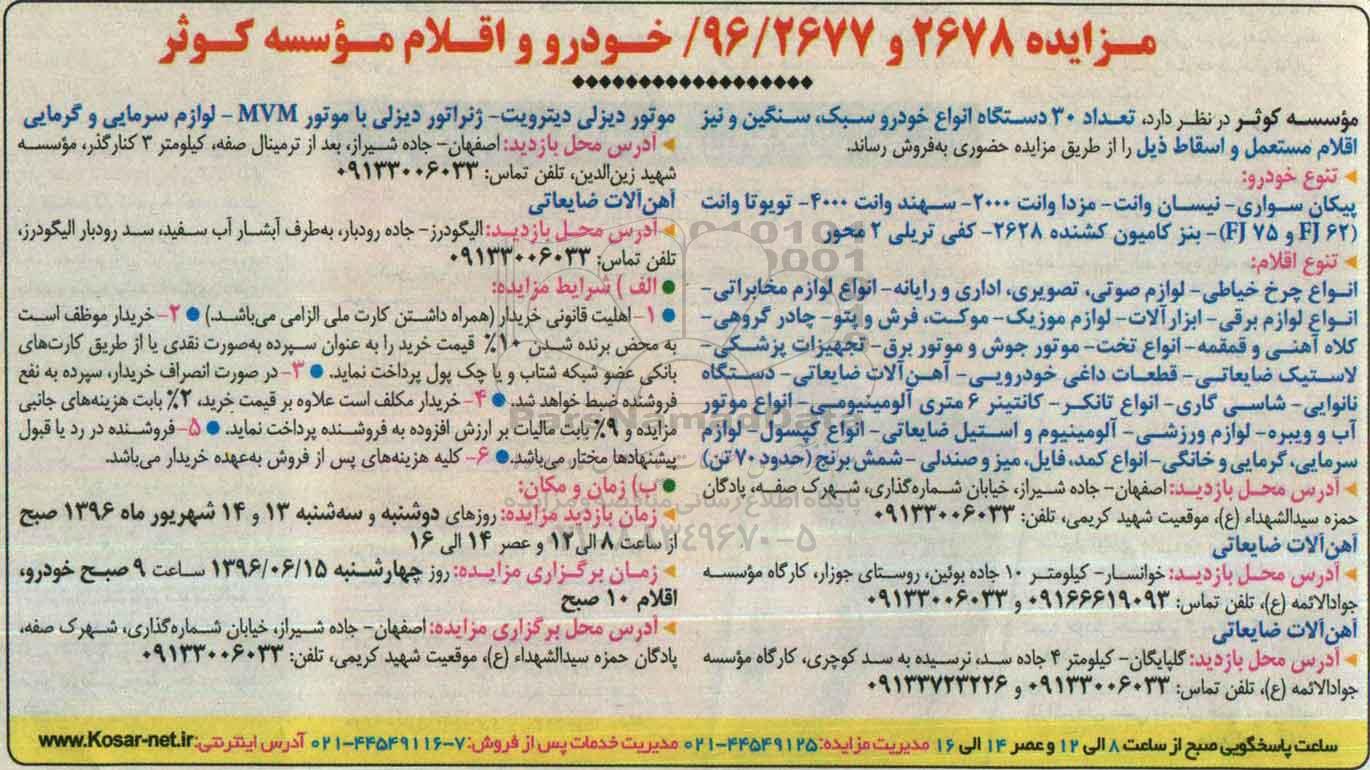 مزایده ۲۶۷۸ و ۹۶/۲۶۷۷/ خودرو و اقلام مؤسسه کوثر
مؤسسه کوثر در نظر دارد، تعداد ۳۰ دستگاه انواع خودرو سبک، سنگین و نیز
اقلام مستعمل و اسقاط ذیل را از طریق مزایده حضوری به‌فروش رساند.
تنوع خودرو:
پیکان سواری- نیسان وانت- مزدا وانت ۲۰۰۰- سهند وانت ۴۰۰۰- تویوتا وانت
(FJ ۶۲ و FJ ۷۵)- بنز کامیون کشنده ۲۶۲۸- کفی تریلی ۲ محور
تنوع اقلام:
انواع چرخ خیاطی- لوازم صوتی، تصویری، اداری و رایانه- انواع لوازم مخابراتی-
انواع لوازم برقی- ابزارآلات- لوازم موزیک- موکت، فرش و پتو- چادر گروهی-
کلاه آهنی و قمقمه- انواع تخت- موتور جوش و موتور برق- تجهیزات پزشکی-
لاستیک ضایعاتی- قطعات داغی خودرویی- آهن‌آلات ضایعاتی- دستگاه
نانوایی- شاسی گاری- انواع تانکر- کانتینر ۶ متری آلومینیومی- انواع موتور
آب و ویبره- لوازم ورزشی- آلومینیوم و استیل ضایعاتی- انواع کپسول- لوازم
سرمایی، گرمایی و خانگی- انواع کمد، فایل، میز و صندلی- شمش برنج (حدود ۷۰ تن)
آدرس محل بازدید: اصفهان- جاده شیراز، خیابان شماره‌گذاری، شهرک صفه، پادگان
حمزه سیدالشهداء (ع)، موقعیت شهید کریمی، تلفن: ۰۹۱۳۳۰۰۶۰۳۳
آهن‌آلات ضایعاتی
آدرس محل بازدید: خوانسار- کیلومتر ۱۰ جاده بوئین، روستای جوزار، کارگاه مؤسسه
جوادالائمه (ع)، تلفن تماس: ۰۹۱۶۶۶۱۹۰۹۳ و ۰۹۱۳۳۰۰۶۰۳۳
آهن‌آلات ضایعاتی
آدرس محل بازدید: گلپایگان- کیلومتر ۴ جاده سد، نرسیده به سد کوچری، کارگاه مؤسسه
جوادالائمه (ع)، تلفن تماس: ۰۹۱۳۳۰۰۶۰۳۳ و ۰۹۱۳۳۷۲۳۲۲۶
موتور دیزلی دیترویت- ژنراتور دیزلی با موتور MVM - لوازم سرمایی و گرمایی
آدرس محل بازدید: اصفهان- جاده شیراز، بعد از ترمینال صفه، کیلومتر ۳ کنارگذر، مؤسسه
شهید زین‌الدین، تلفن تماس: ۰۹۱۳۳۰۰۶۰۳۳
آهن‌آلات ضایعاتی
آدرس محل بازدید: الیگودرز- جاده رودبار، به‌طرف آبشار آب سفید، سد رودبار الیگودرز،
تلفن تماس: ۰۹۱۳۳۰۰۶۰۳۳
الف ) شرایط مزایده:
۱- اهلیت قانونی خریدار (همراه داشتن کارت ملی الزامی می‌باشد.) ● ۲- خریدار موظف است
به محض برنده شدن ۱۰٪ قیمت خرید را به عنوان سپرده به‌صورت نقدی یا از طریق کارت‌های
بانکی عضو شبکه شتاب و یا چک پول پرداخت نماید. ● ۳- در صورت انصراف خریدار، سپرده به نفع
فروشنده ضبط خواهد شد. ● ۴- خریدار مکلف است علاوه بر قیمت خرید، ۲٪ بابت هزینه‌های جانبی
مزایده و ۹٪ بابت مالیات بر ارزش افزوده به فروشنده پرداخت نماید. ● ۵- فروشنده در رد یا قبول
پیشنهادها مختار می‌باشد. ● ۶- کلیه هزینه‌های پس از فروش به‌عهده خریدار می‌باشد.
ب) زمان و مکان:
زمان بازدید مزایده: روزهای دوشنبه و سه‌شنبه ۱۳ و ۱۴ شهریور ماه ۱۳۹۶ صبح
از ساعت ۸ الی ۱۲ و عصر ۱۴ الی ۱۶
زمان برگزاری مزایده: روز چهارشنبه ۱۳۹۶/۰۶/۱۵ ساعت ۹ صبح خودرو،
اقلام ۱۰ صبح
آدرس محل برگزاری مزایده: اصفهان- جاده شیراز، خیابان شماره‌گذاری، شهرک صفه،
پادگان حمزه سیدالشهداء (ع)، موقعیت شهید کریمی، تلفن: ۰۹۱۳۳۰۰۶۰۳۳
ساعت پاسخگویی صبح از ساعت ۸ الی ۱۲ و عصر ۱۴ الی ۱۶ مدیریت مزایده: ۴۴۵۴۹۱۲۵-۰۲۱ مدیریت خدمات پس از فروش: ۷-۴۴۵۴۹۱۱۶-۰۲۱ آدرس اینترنتی: www.Kosar-net.ir